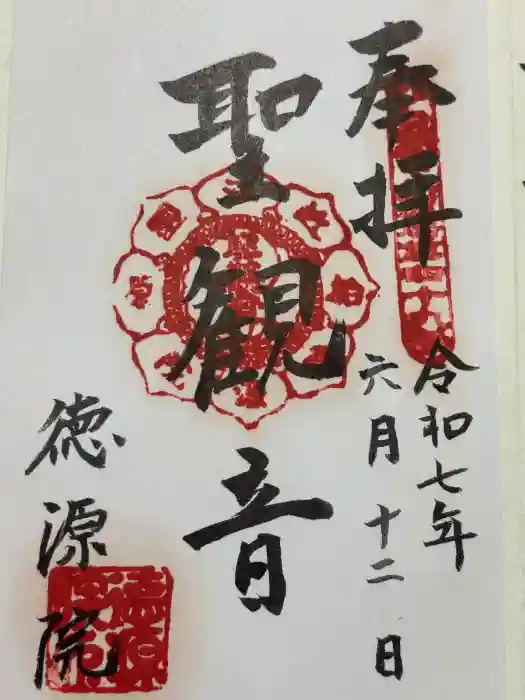 奉拝
令和七年
六月十二日
聖観音
徳源院